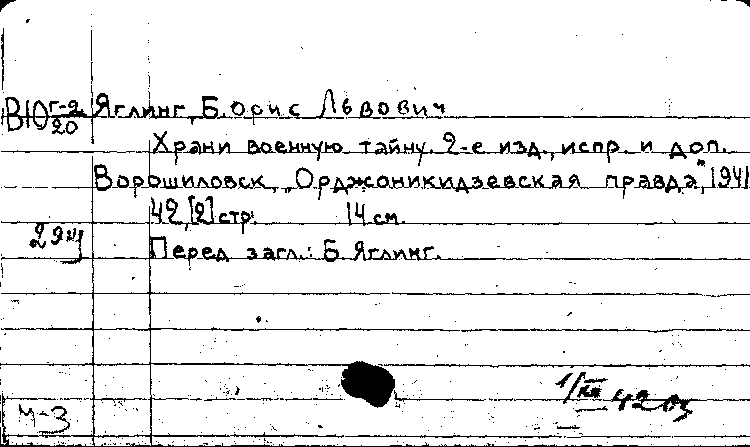 В10 г-2/20 Яглинг, Борис Львович
Храни военную тайну. 2-е изд., испр. и доп.
Ворошиловск, „Орджоникидзевская правда", 1941
42, [2] стр. 14 см.
Перед загл.: Б. Яглинг.
м-3